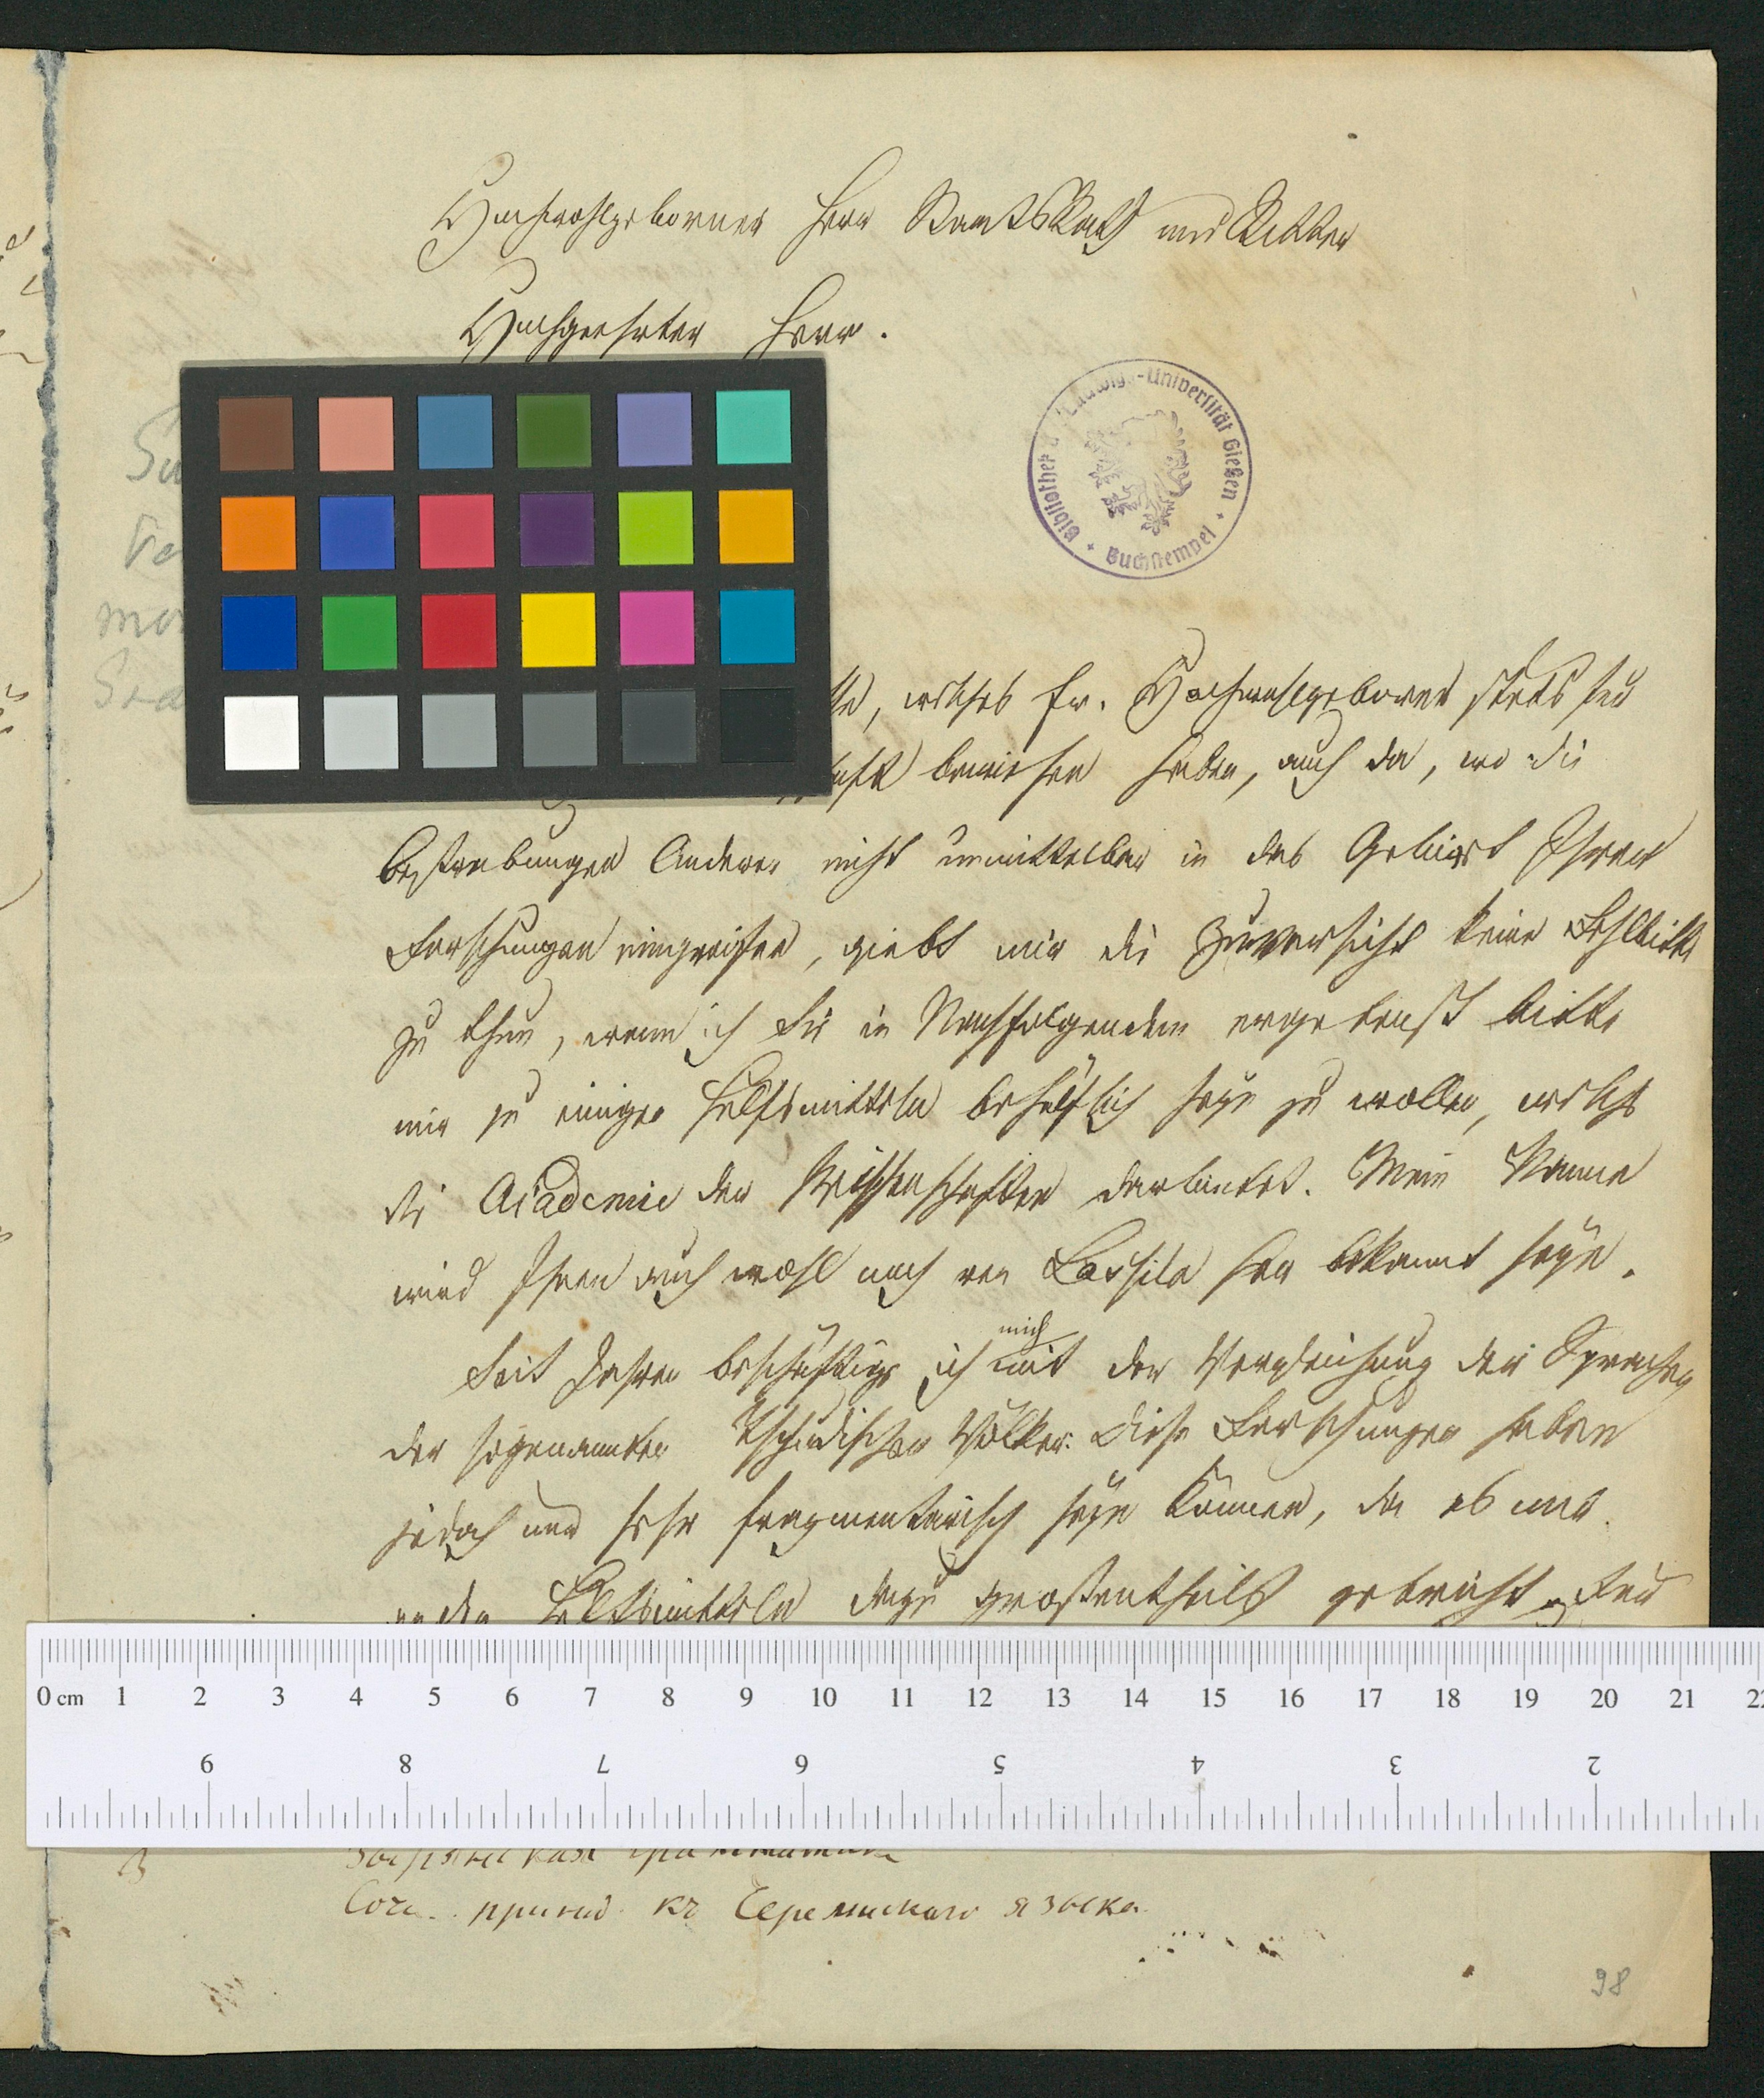 Hochwohlgeborner Herr StaatsRath und Ritter
Hochgeehrter Herr.
Bibliothek d. Ludwigs-Universität Gießen
Buchstempel
welches Ew. Hochwohlgeboren stets für
bewiesen haben, auch da, wo die
Bestrebungen Anderer nicht unmittelbar in das Gebiet Ihrer
Forschungen eingreifen, giebt mir die Zuversicht keine Fehlbitte
zu thun, wenn ich Sie in Nachfolgendem ergebenst bitte
mir zu einigen Hülfsmitteln behülflich seyn zu wollen, welche
die Academie der Wissenschaften darbietet. Mein Name
wird Ihnen auch wohl noch von her bekannt seyn.
Seit Jahren beschäftige ich mich mit der Vergleichung der Sprachen
der sogenannten Tschudischen Völker. Diese Forschungen haben
jedoch nur sehr fragmentarisch seyn können, da es mir
an den Hülfsmitteln dazu großentheils gebricht. Für
0 cm 1 2 3 4 5 6 7 8 9 10 11 12 13 14 15 16 17 18 19 20 21
9 8 7 6 5 4 3 2
Зырянская грамматика
къ Черемискаго языка
98